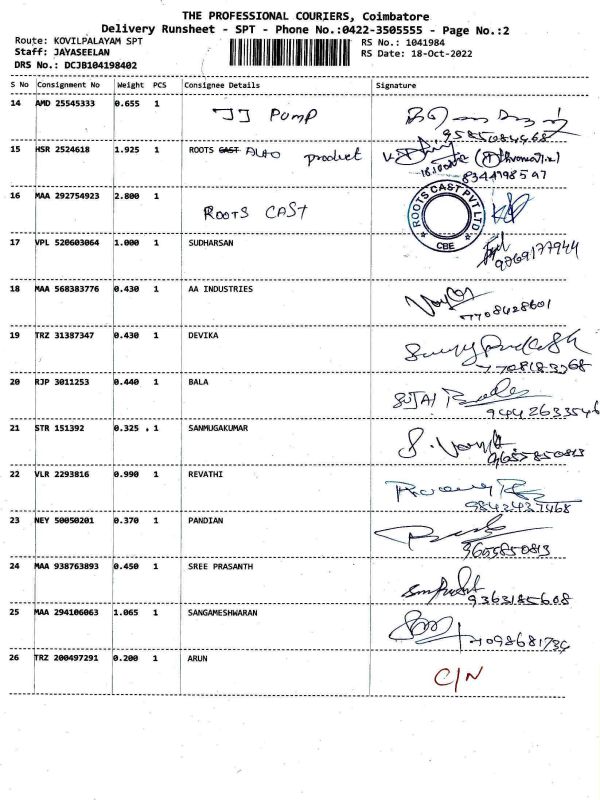 THE PROFESSIONAL COURIERS, Coimbatore
Delivery Runsheet - SPT - Phone No.:0422-3505555 - Page No.:2
Route: KOVILPALAYAM SPT
RS No.: 1041984
Staff: JAYASEELAN
RS Date: 18-Oct-2022
DRS No.: DCJB104198402
S No Consignment No Weight PCS Consignee Details Signature
14 AMD 25545333 0.655 1 JJ PUMP
9585084468
15 HSR 2524618 1.925 1 ROOTS CAST AUTO product
8344198597
16 MAA 292754923 2.800 1 ROOTS CAST
ROOTS CAST PVT LTD
CBE
17 VPL 520603064 1.000 1 SUDHARSAN
9869177944
18 MAA 568383776 0.430 1 AA INDUSTRIES
7708428601
19 TRZ 31387347 0.430 1 DEVIKA
7708183768
20 RJP 3011253 0.440 1 BALA SUJAI
9442633546
21 STR 151392 0.325 1 SANMUGAKUMAR
9655850813
22 VLR 2293816 0.990 1 REVATHI
9842437468
23 NEY 50050201 0.370 1 PANDIAN
9655850813
24 MAA 938763893 0.450 1 SREE PRASANTH
9363185608
25 MAA 294106063 1.065 1 SANGAMESHWARAN
7098681734
26 TRZ 200497291 0.200 1 ARUN C/N